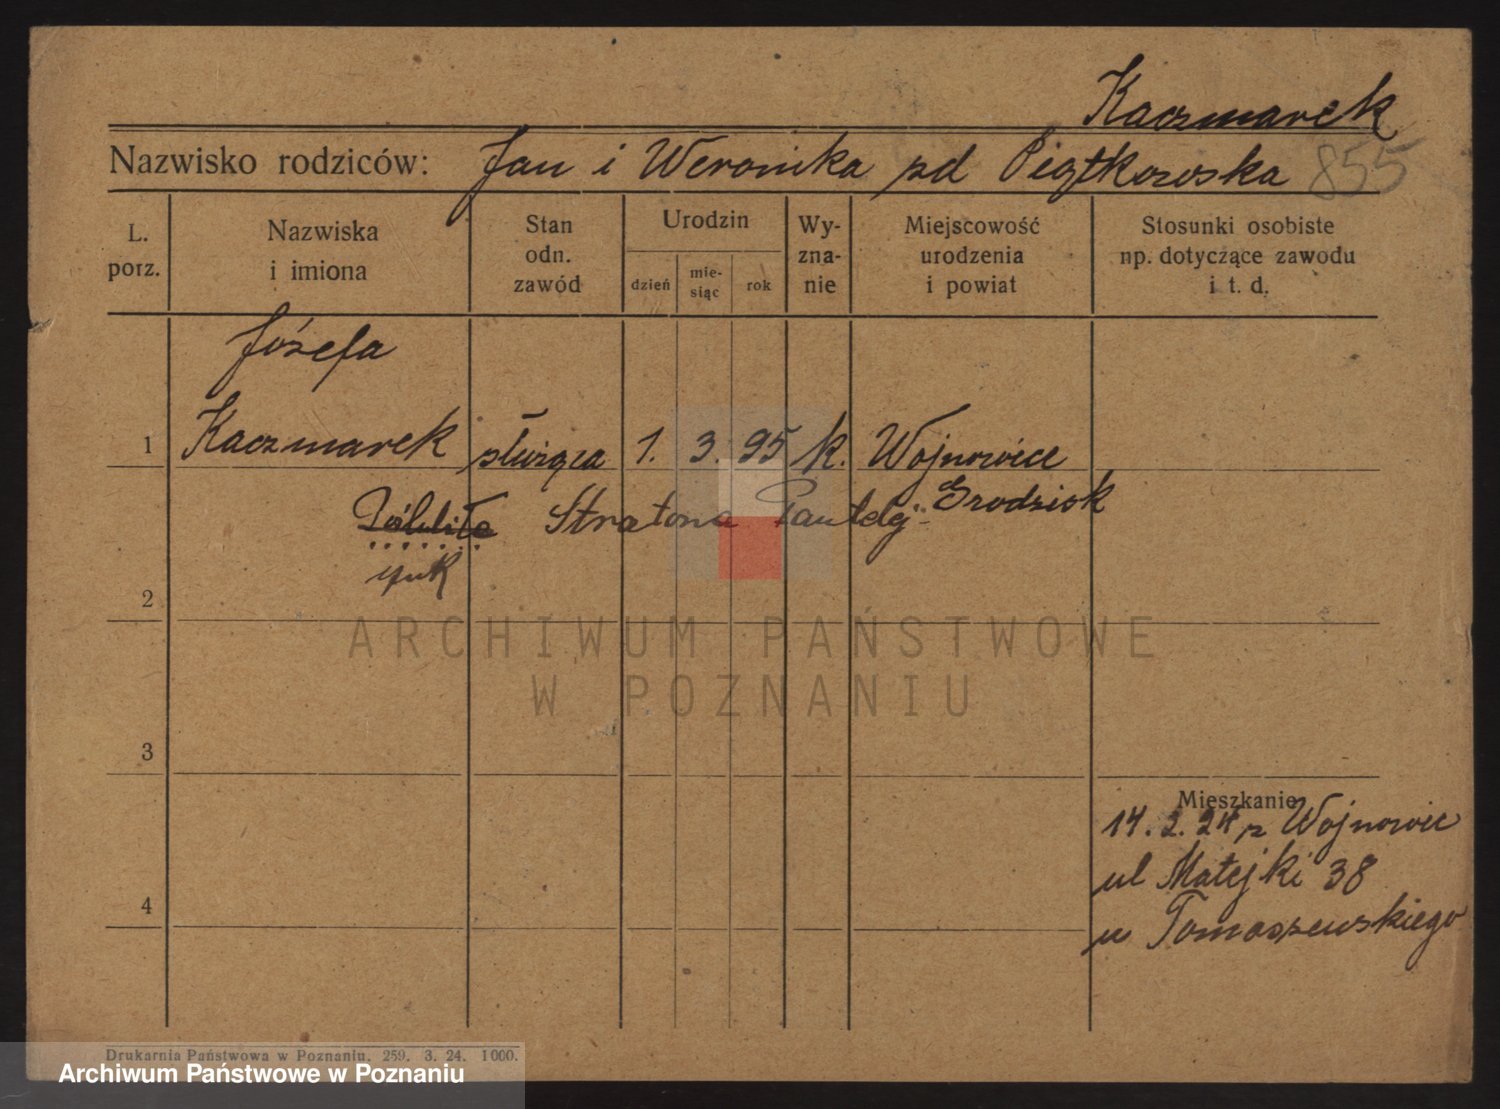 Kaczmarek
Nazwisko rodziców: Jan i Weronika zd Piątkowska 855
L. porz.
Nazwiska i imiona
Stan odn. zawód
Urodzin
dzień
mie- siąc
rok
Wy- zna- nie
Miejscowość urodzenia i powiat
Stosunki osobiste np. dotyczące zawodu i t. d.
Józefa
1 Kaczmarek służąca 1. 3. 95 k. Wojnowice
Grodzisk
Stratona
2
ARCHIWUM PAŃSTWOWE
W POZNANIU
3
Mieszkanie
14. 2. 24 z Wojnowic
ul Matejki 38
4
u Tomaszewskiego
Drukarnia Państwowa w Poznaniu. 259. 3. 24. 1000.
Archiwum Państwowe w Poznaniu